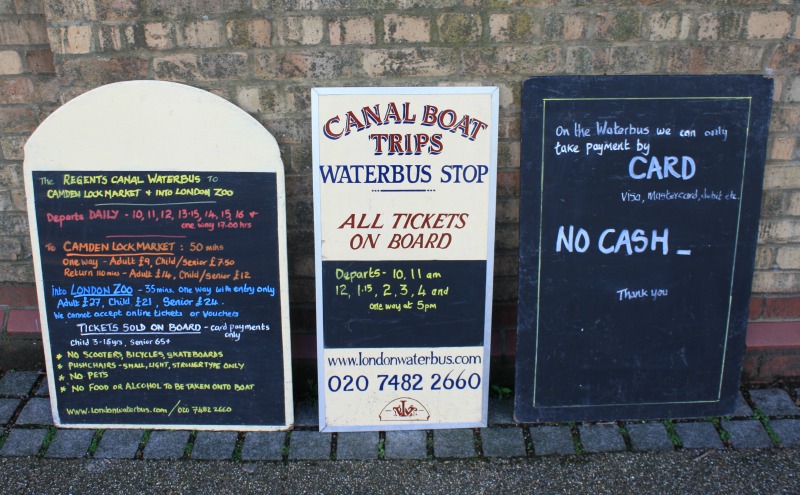 The REGENTS CANAL WATERBUS TO
CAMDEN LOCK MARKET + INTO LONDON ZOO
Departs DAILY - 10, 11, 12, 13·15, 14, 15, 16 +
one way 17.00 hrs
To CAMDEN LOCK MARKET : 50 mins
One way - Adult £9, Child/Senior £7·50
Return 110 mins - Adult £14, Child/Senior £12
into LONDON ZOO - 35 mins. One way with entry only
Adult £27, Child £21, Senior £24.
We cannot accept online tickets or vouchers
TICKETS SOLD ON BOARD - card payments
only
Child 3-15yrs, Senior 65+
* NO SCOOTERS, BICYCLES, SKATEBOARDS
* PUSHCHAIRS - SMALL, LIGHT, STROLLER TYPE ONLY
* NO PETS
* NO FOOD OR ALCOHOL TO BE TAKEN ONTO BOAT
www.londonwaterbus.com / 020 7482 2660
CANAL BOAT
TRIPS
WATERBUS STOP
ALL TICKETS
ON BOARD
Departs - 10, 11 am
12, 1·15, 2, 3, 4 and
one way at 5pm
www.londonwaterbus.com
020 7482 2660
On the Waterbus we can only
take payment by
CARD
Visa, Mastercard, debit etc.
NO CASH _
Thank you